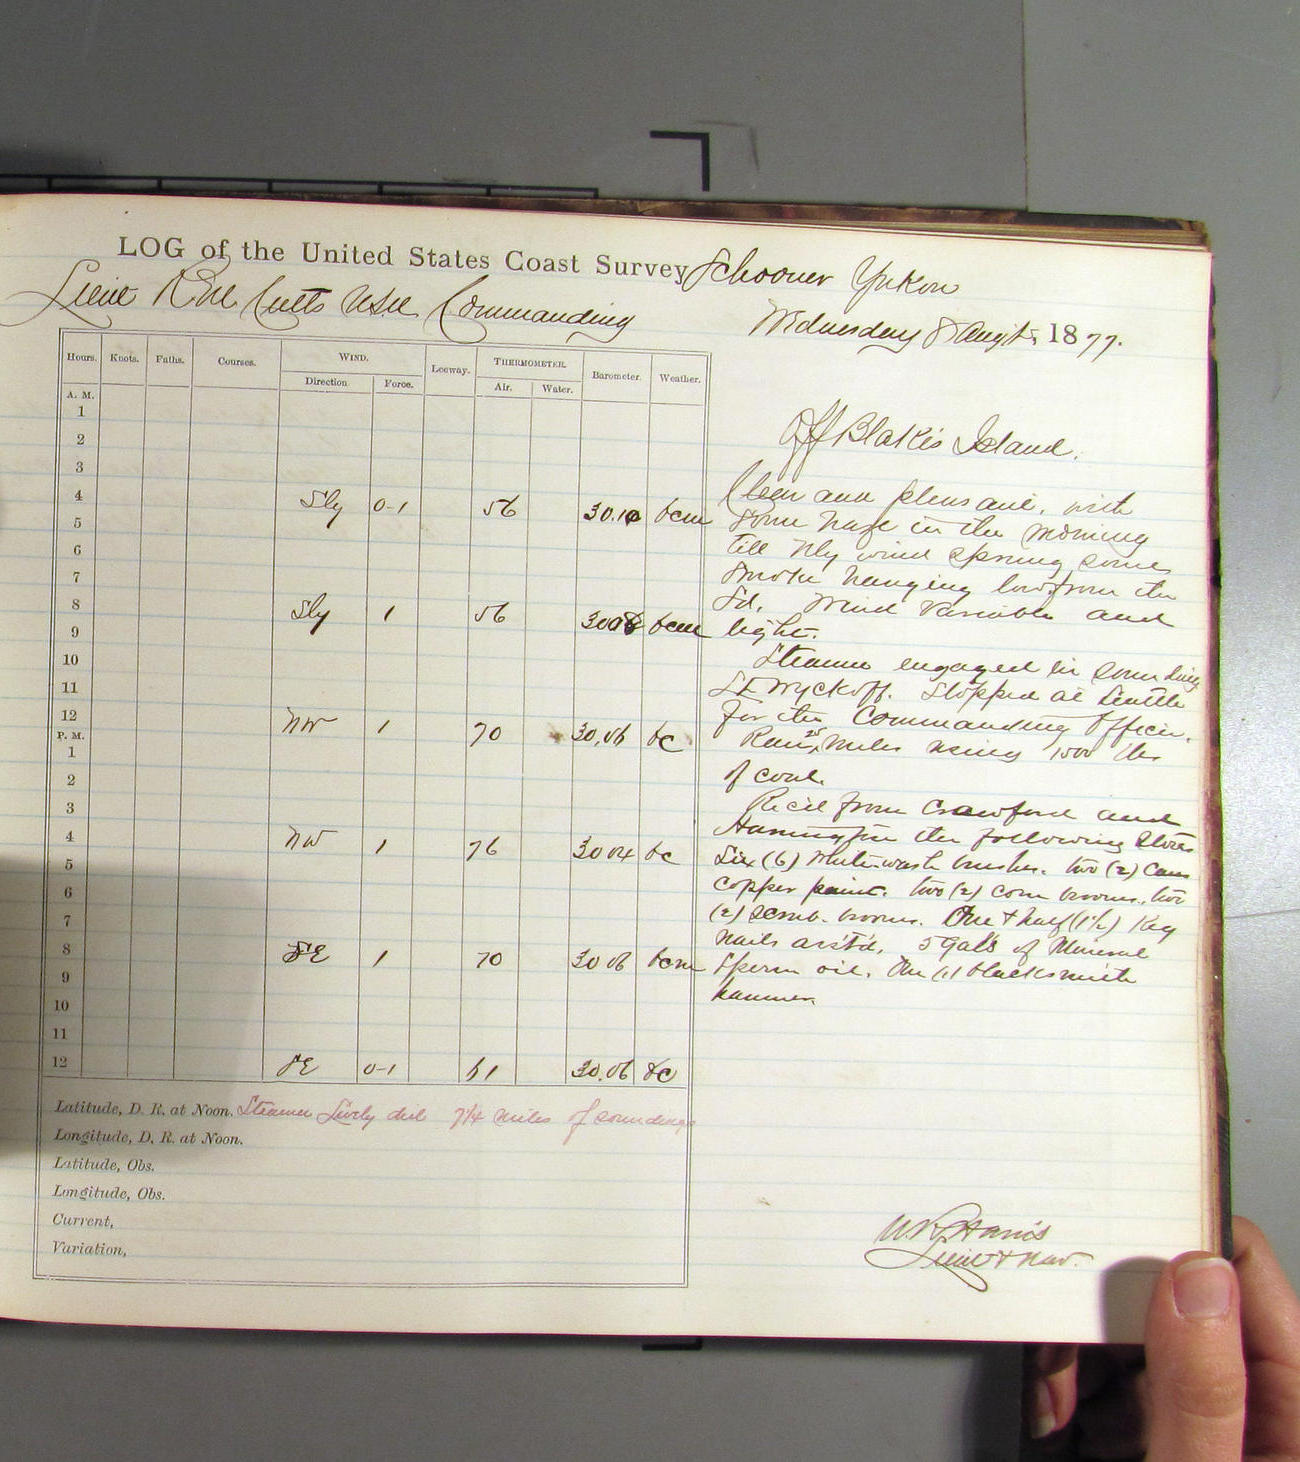 LOG of the United States Coast Survey Schooner Yukon
Lieut R M Cutts USN Commanding
Wednesday 8 Augt. 1877.
Hours. Knots. Faths. Courses. WIND. Leeway. THERMOMETER. Barometer. Weather.
Direction Force. Air. Water.
A. M.
1
2
3
4 Sly 0-1 56 30.10 bcm
5
6
7
8 Sly 1 56 3008 bcm
9
10
11
12 NW 1 70 30.06 bc
P. M.
1
2
3
4 NW 1 76 30 04 bc
5
6
7
8 SE 1 70 30 06 bcm
9
10
11
12 SE 0-1 61 30.06 bc
Latitude, D. R. at Noon. Steamer Lively did 7 1/4 miles of soundings
Longitude, D. R. at Noon.
Latitude, Obs.
Longitude, Obs.
Current,
Variation,
Off Blakes Island.
Clear and pleasant, with
some haze in the morning
till Nly wind sprung some
smoke hanging low from the
Sd. Wind variable and
light.
Steamer engaged in sounding
Lt Wyckoff. Stopped at Seattle
for the Commanding Officer.
Ran 25 miles using 1500 lbs
of coal.
Rec'd from Crawford and
Harrington the following stores
Six (6) Whitewash brushes. two (2) Cans
copper paint. two (2) corn brooms, two
(2) scrub. brooms. One & half (1½) Keg
nails ass'td. 5 Gals of Mineral
Sperm oil. One (1) blacksmith
hammer
W. R. Harris
Lieut & Nav.